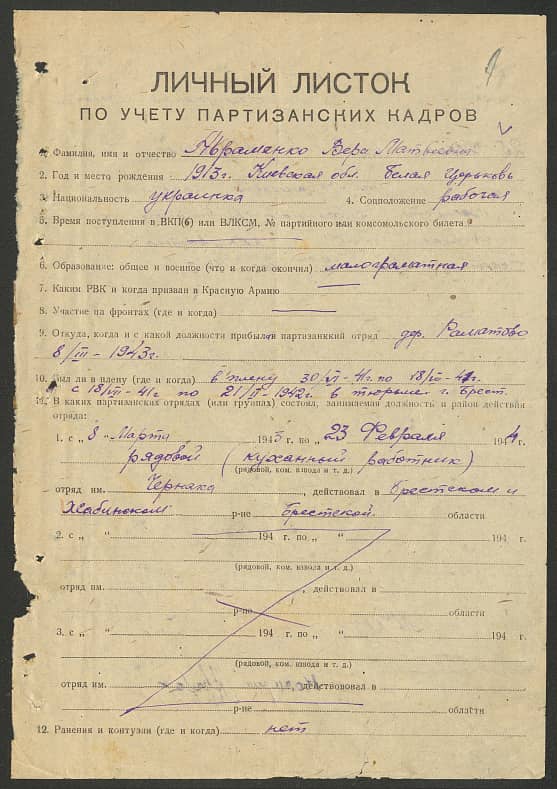 ЛИЧНЫЙ ЛИСТОК
ПО УЧЕТУ ПАРТИЗАНСКИХ КАДРОВ
1. Фамилия, имя и отчество Авраменко Вера Матвеевна
2. Год и место рождения 1913г. Киевская обл. Белая Церковь
3. Национальность украинка 4. Соцположение рабочая
5. Время поступления в ВКП(б) или ВЛКСМ, № партийного или комсомольского билета
6. Образование: общее и военное (что и когда окончил) малограматная
7. Каким РВК и когда призван в Красную Армию —
8. Участие на фронтах (где и когда) —
9. Откуда, когда и с какой должности прибыл в партизанский отряд дер.
8/III – 1943г.
10. Был ли в плену (где и когда) в плену 30/VI – 41г. по 18/VII – 41г.
с 18/VII – 41г по 21/II – 1942г. в тюрьме г. Брест.
11. В каких партизанских отрядах (или группах) состоял, занимаемая должность и район действия
отряда:
1. с „ 8 „ Марта 1943 г. по „ 23 Февраля 1944 г.
рядовой (кухонный работник)
(рядовой, ком. взвода и т. д.)
отряд им. Чернака , действовал в Брестском и
Жабинском р-не брестской области
2. с „ “ 194 г. по „ “ 194 г.
(рядовой, ком. взвода и т. д.)
отряд им. , действовал в
р-не области
3. с „ “ 194 г. по „ “ 194 г.
(рядовой, ком. взвода и т. д.)
отряд им. действовал в
р-не области
12. Ранения и контузии (где и когда) нет